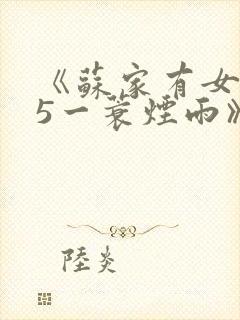 《蘇家有女
5一蓑煙雨》
陸炎